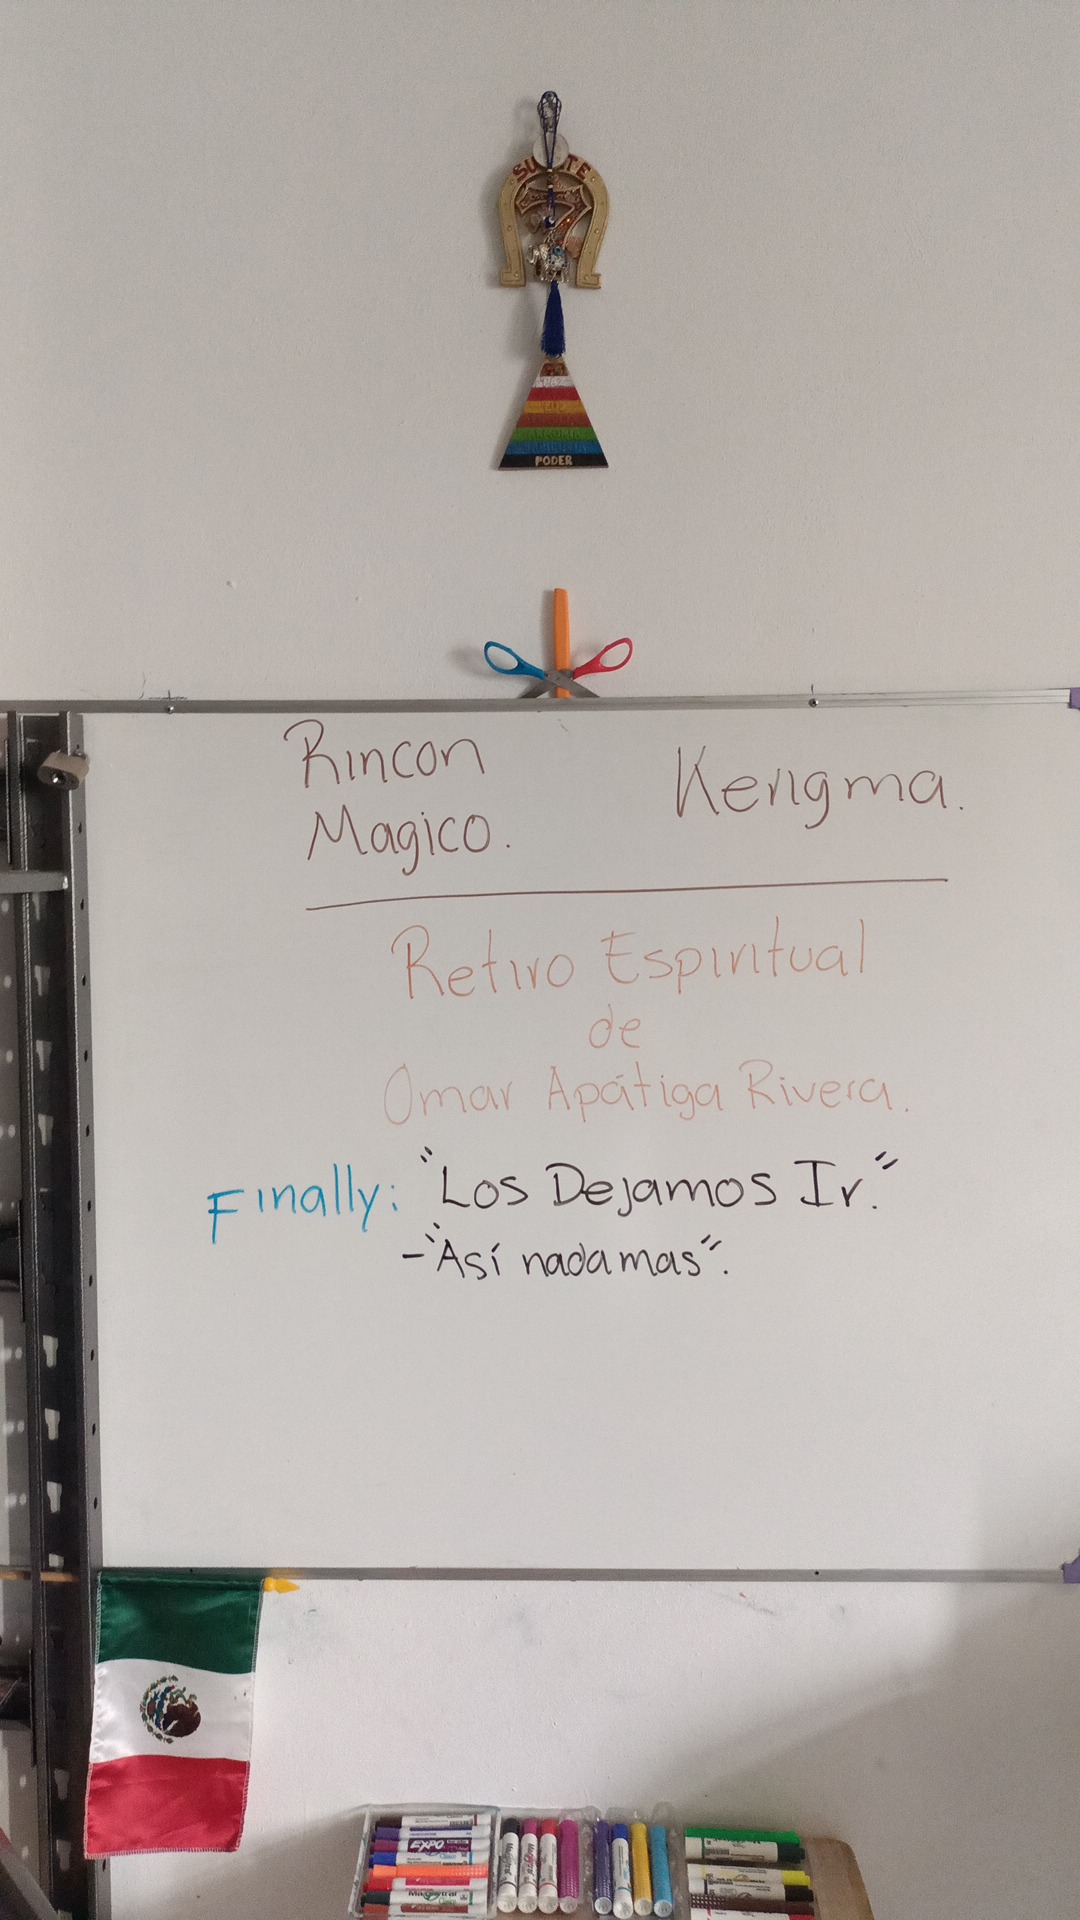 SU TE
7
PODER
Rincon
Magico.
Kerigma.
Retiro Espiritual
de
Omar Apátiga Rivera.
Finally: "Los Dejamos Ir."
-"Así nadamas".
EXPO
Magistral